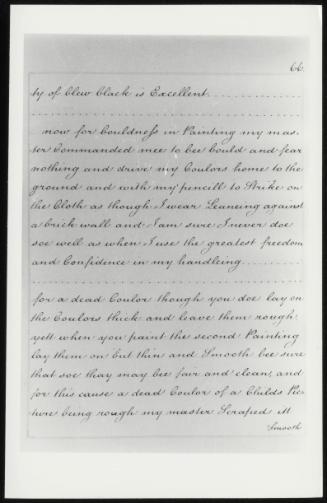 66.
ty of Blew Black is Excellent
now for bouldness in Painting my mas-
ter Commanded mee to bee bould and fear
nothing and drive my Coulors home to the
ground and with my pencill to Strike on
the Cloth as though I wear Leaneing against
a brick wall and I am sure I never doe
soe well as when I use the greatest freedom
and Confidence in my handleing
for a dead Coulor though you doe lay on
the Coulors thick and leave them rough
yett when you paint the second Painting
lay them on but thin and Smooth bee sure
that soe thay may bee fair and clean, and
for this cause a dead Coulor of a Childs Pic-
ture being rough my master Scraped it
Smooth